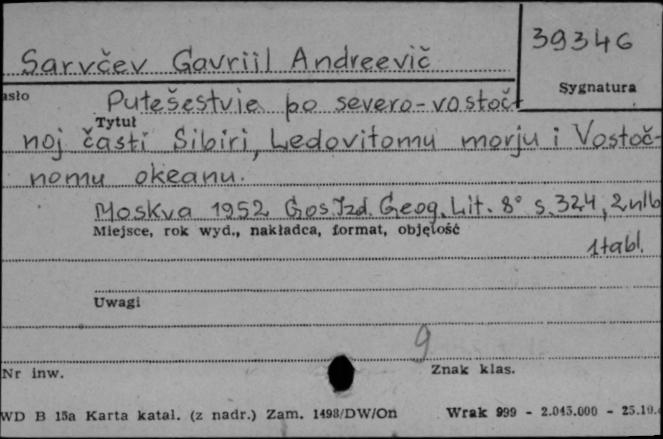 39346
Sarvčev Gavriil Andreevič
Sygnatura
asło
Putešestvie po severo-vostoč-
Tytuł
noj časti Sibiri, Ledovitomu morju i Vostoč-
nomu okeanu.
Moskva 1952 Gos. Izd. Geog. Lit. 8° s. 324, 2 nlb
Miejsce, rok wyd., nakładca, format, objętość
1 tabl.
Uwagi
9
Nr inw.
Znak klas.
WD B 15a Karta katal. (z nadr.) Zam. 1498/DW/On
Wrak 999 - 2.045.000 - 25.10.